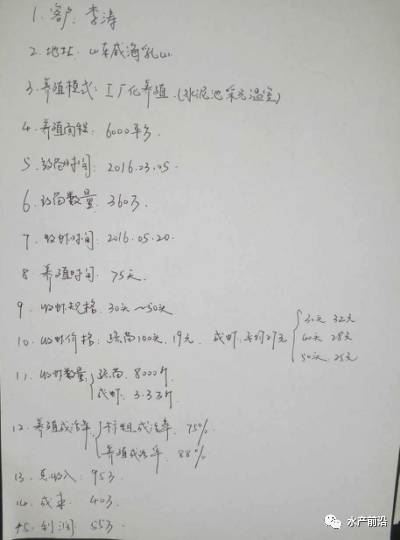 1. 客户: 李涛
2. 地址: 山东威海乳山
3. 养殖模式: 工厂化养殖.(水泥池采光温室)
4. 养殖面积: 6000平方
5. 放苗时间: 2016.03.05.
6. 放苗数量: 360万.
7. 收虾时间: 2016.05.20.
8. 养殖时间: 75天.
9. 收虾规格. 30头~50头
10. 收虾价格: 练苗100头, 19元. 成虾: 平均27元 30头 32元
40头 28元
50头 25元
11. 收虾数量 练苗. 8000斤
成虾. 3.3万斤
12. 养殖成活率. 标粗成活率. 75%
养殖成活率. 88%
13. 总收入: 95万
14. 成本: 40万
15. 利润: 55万.
水产前沿